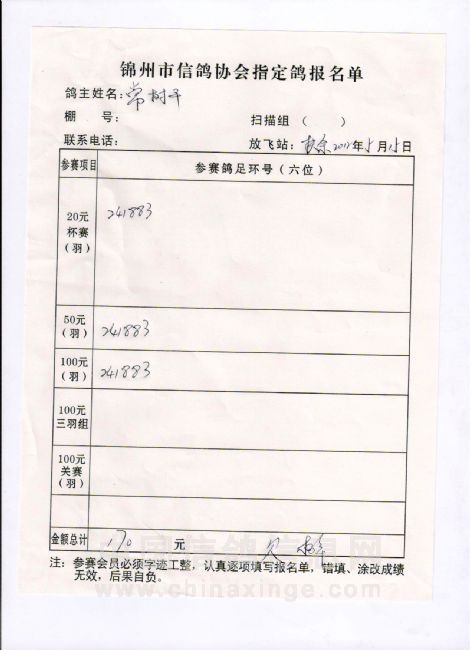 锦州市信鸽协会指定鸽报名单
鸽主姓名：常树千
棚　号：　扫描组（　）
联系电话：　放飞站：　年5月15日
参赛项目　参赛鸽足环号（六位）
20元
杯赛
（羽）
241883
50元
（羽）
241883
100元
（羽）
241883
100元
三羽组
100元
关赛
（羽）
金额总计　170　元
注：参赛会员必须字迹工整，认真逐项填写报名单，错填、涂改成绩
无效，后果自负。
中国信鸽信息网
www.chinaxinge.com